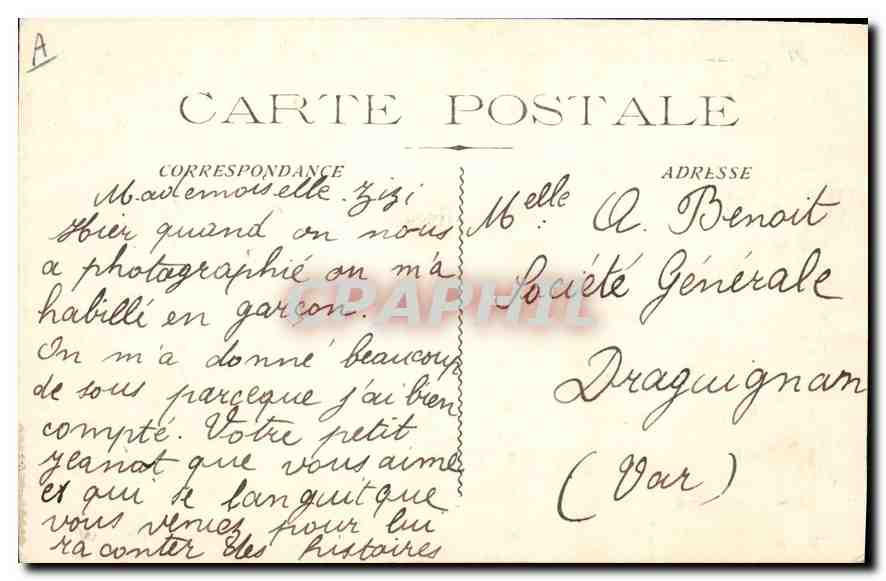 A
CARTE POSTALE
CORRESPONDANCE
Mademoiselle Zizi
Hier quand on nous
a photographié on m'a
habillé en garçon.
On m'a donné beaucoup
de sous parceque j'ai bien
compté. Votre petit
Jeanot que vous aime
et qui se languit que
vous veniez pour lui
raconter des histoires
ADRESSE
Melle A. Benoit
Société Générale
Draguignan
(Var)
CPAPHIL